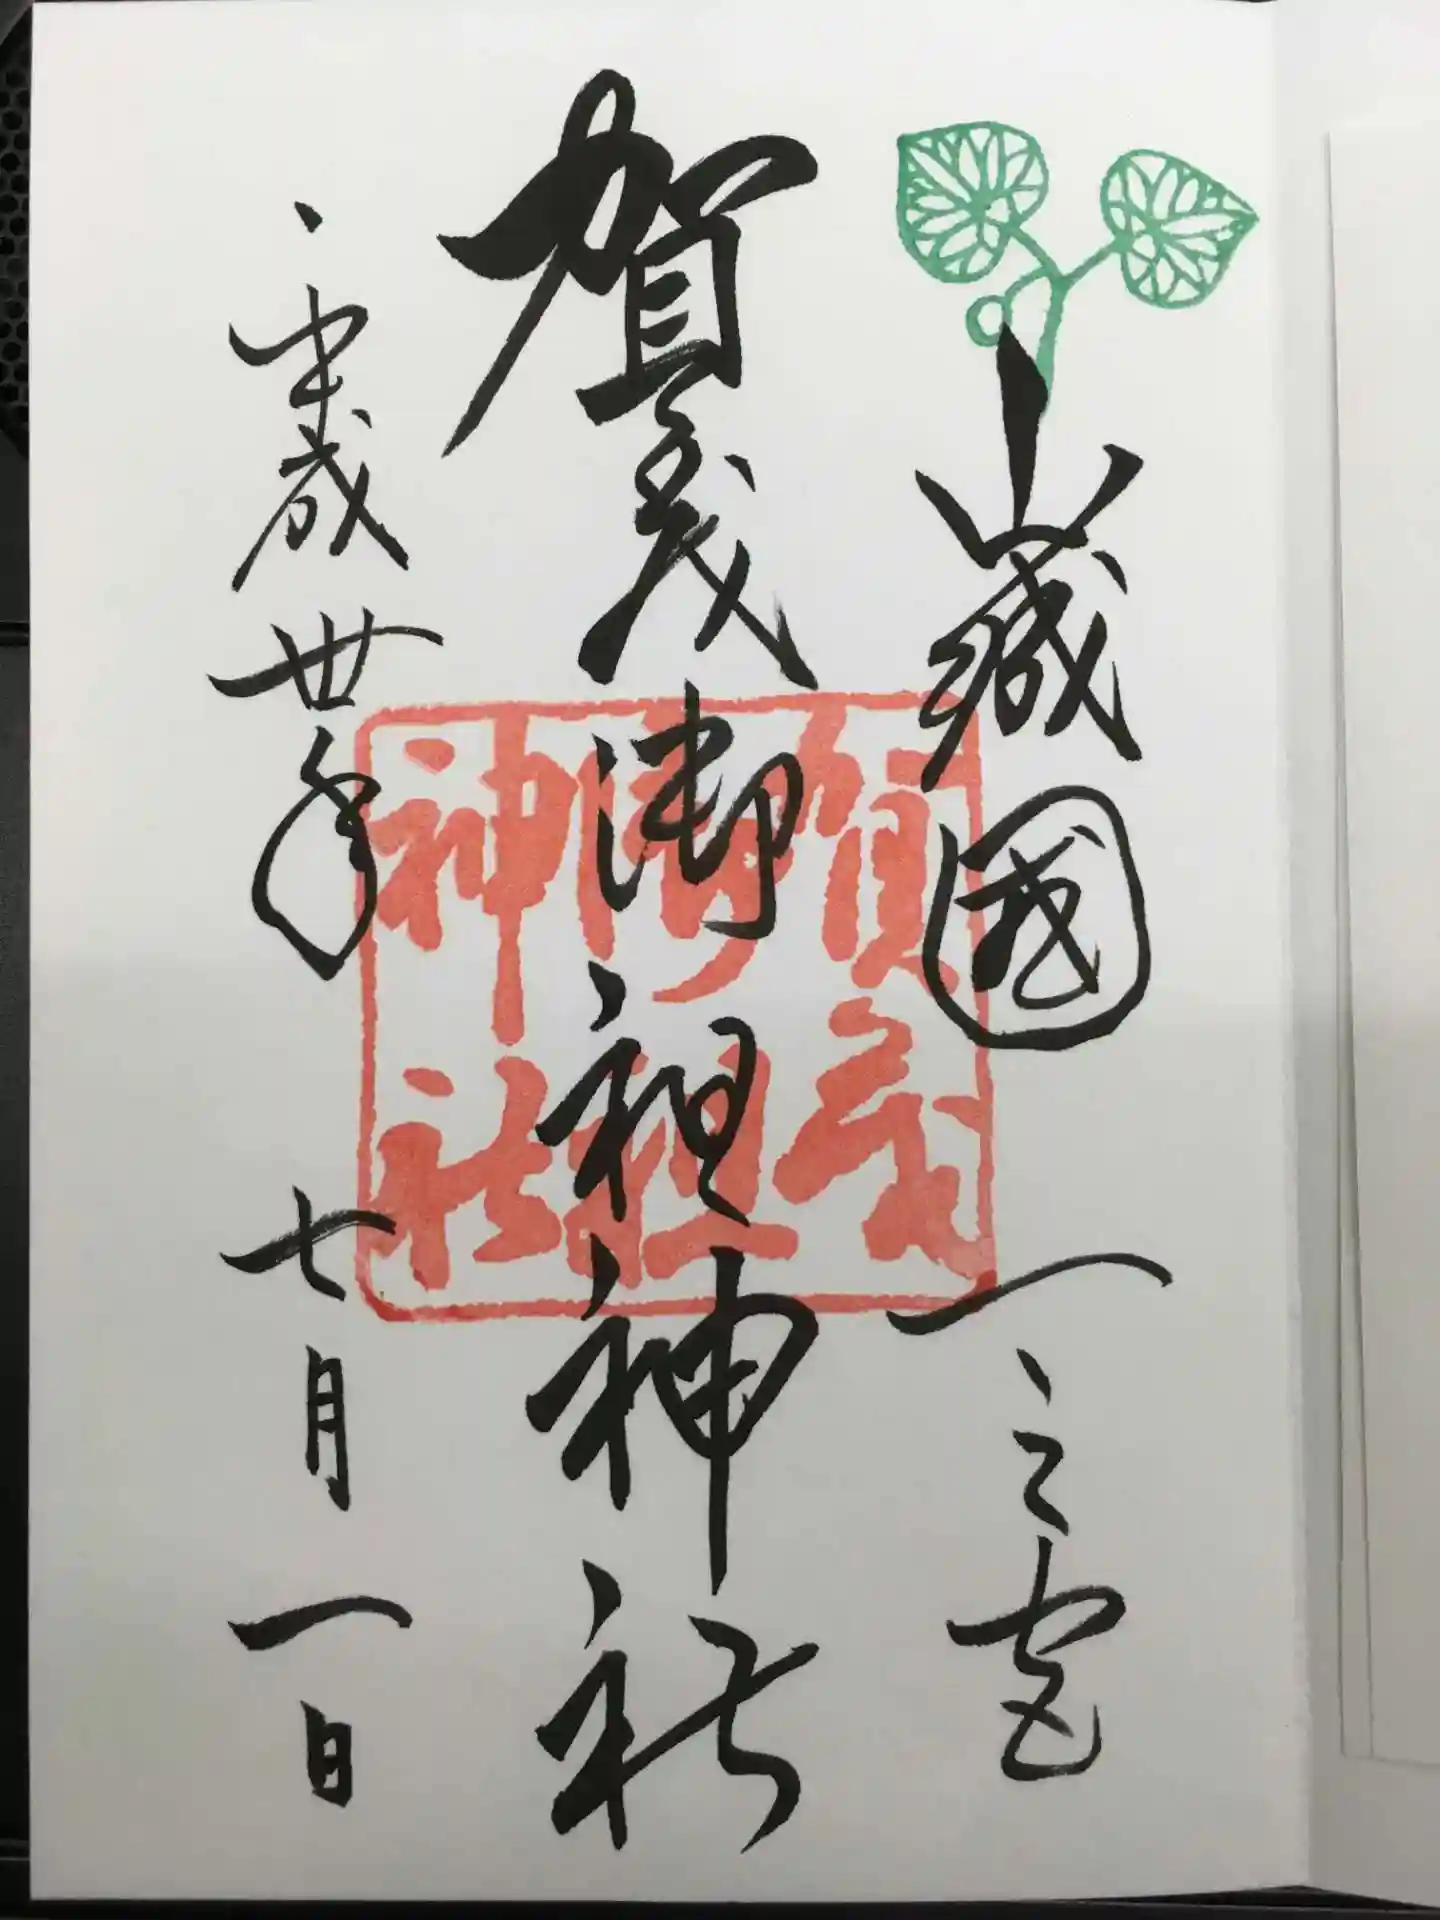 山城國一之宮
賀茂御祖神社
賀茂
御祖
神社
平成卅年 七月一日